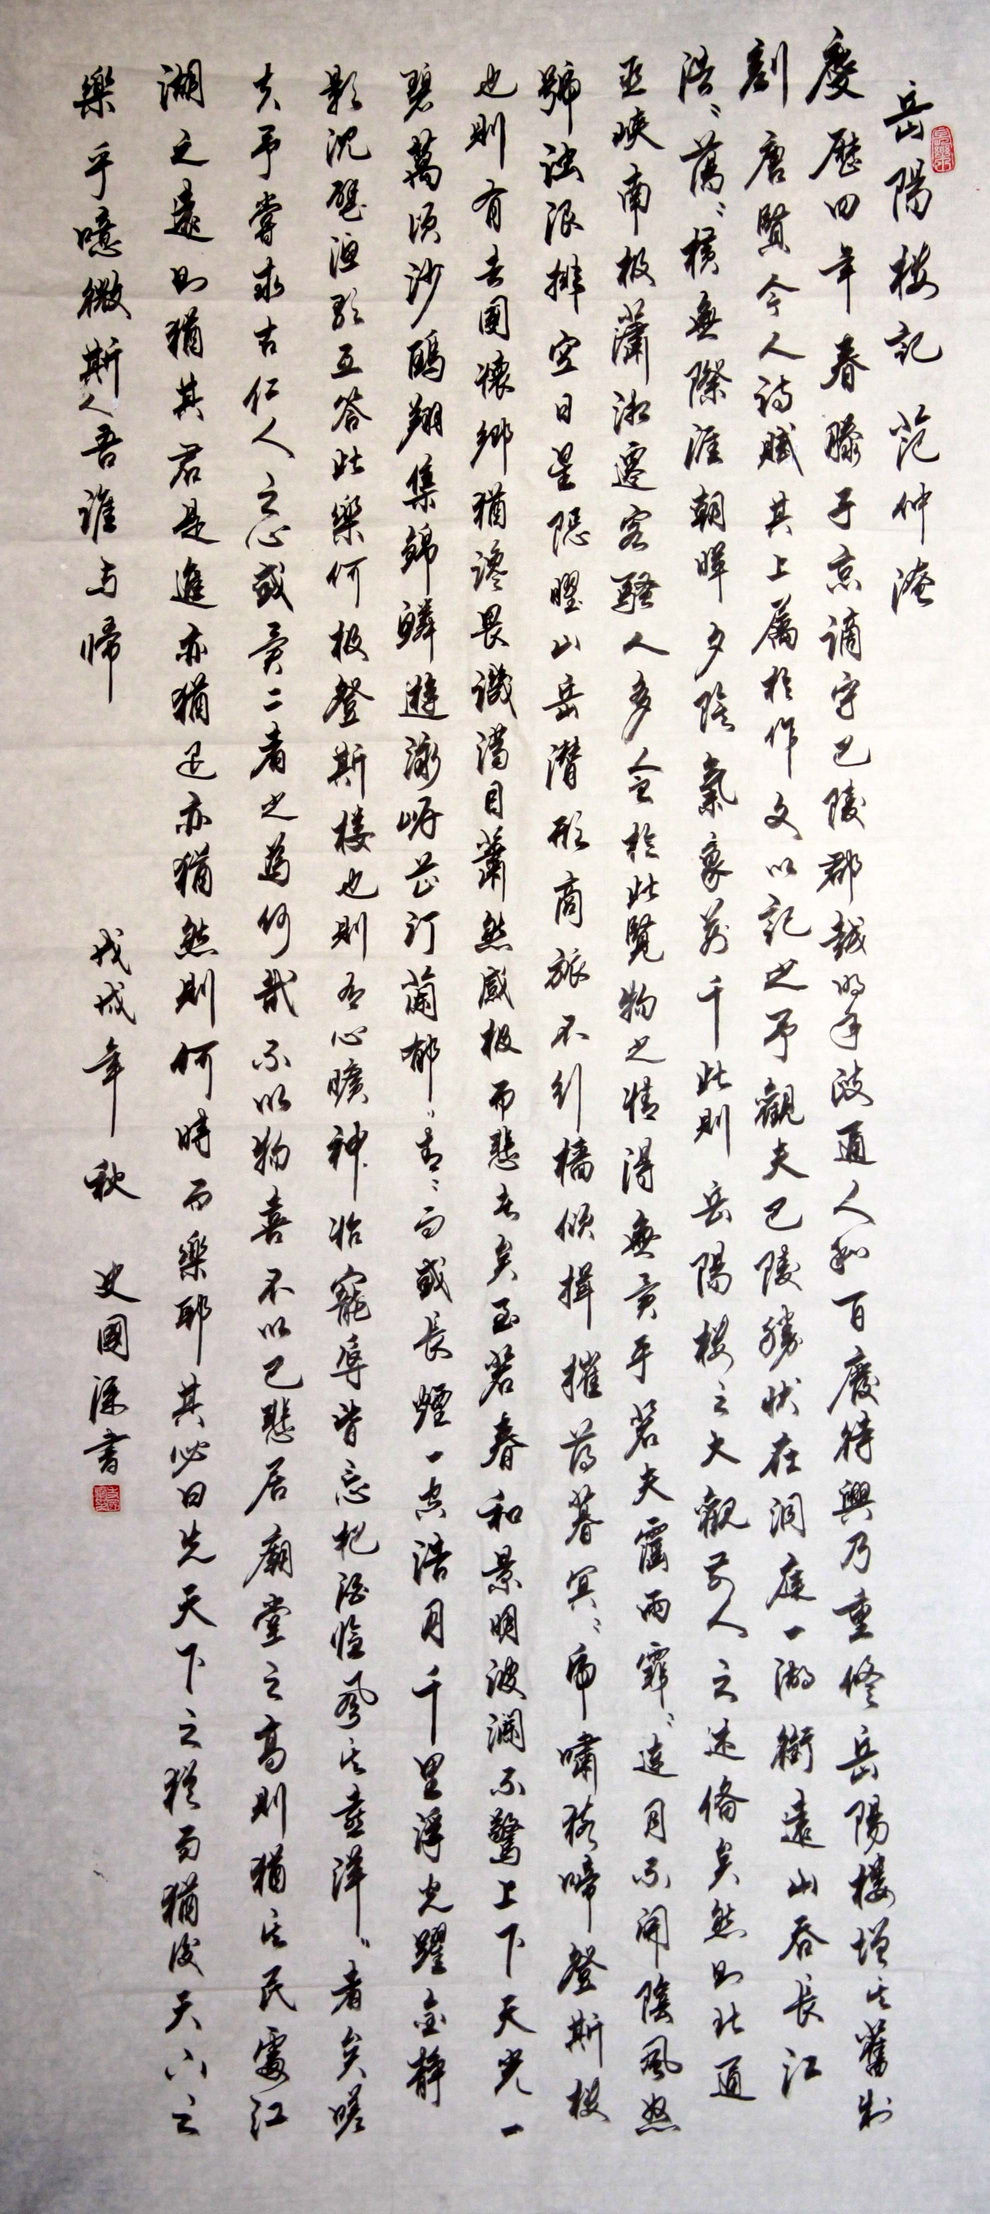 岳陽樓記 范仲淹
慶歷四年春滕子京謫守巴陵郡越明年政通人和百廢待興乃重修岳陽樓增其舊制
刻唐賢今人詩賦其上屬於作文以記之予觀夫巴陵勝狀在洞庭一湖銜遠山吞長江
浩〻蕩〻橫無際涯朝暉夕陰氣象萬千此則岳陽樓之大觀前人之述備矣然則北通
巫峽南極瀟湘遷客騷人多會於此覽物之情得無異乎若夫霪雨霏〻連月不開陰風怒
號濁浪排空日星隱曜山岳潛形商旅不行檣傾楫摧薄暮冥〻虎嘯猿啼登斯樓
也則有去國懷鄉猶讒畏譏滿目蕭然感極而悲者矣至若春和景明波瀾不驚上下天光一
碧萬頃沙鷗翔集錦鱗遊泳岸芷汀蘭郁〻青〻而或長煙一空浩月千里浮光躍金靜
影沉璧漁歌互答此樂何極登斯樓也則有心曠神怡寵辱皆忘把酒臨風其喜洋〻者矣嗟
夫予嘗求古仁人之心或異二者之為何哉不以物喜不以己悲居廟堂之高則猶其民處江
湖之遠則猶其君是進亦猶退亦猶然則何時而樂耶其必曰先天下之猶而猶後天下之
樂乎噫微斯人吾誰與歸
戊戌年秋 史國深書